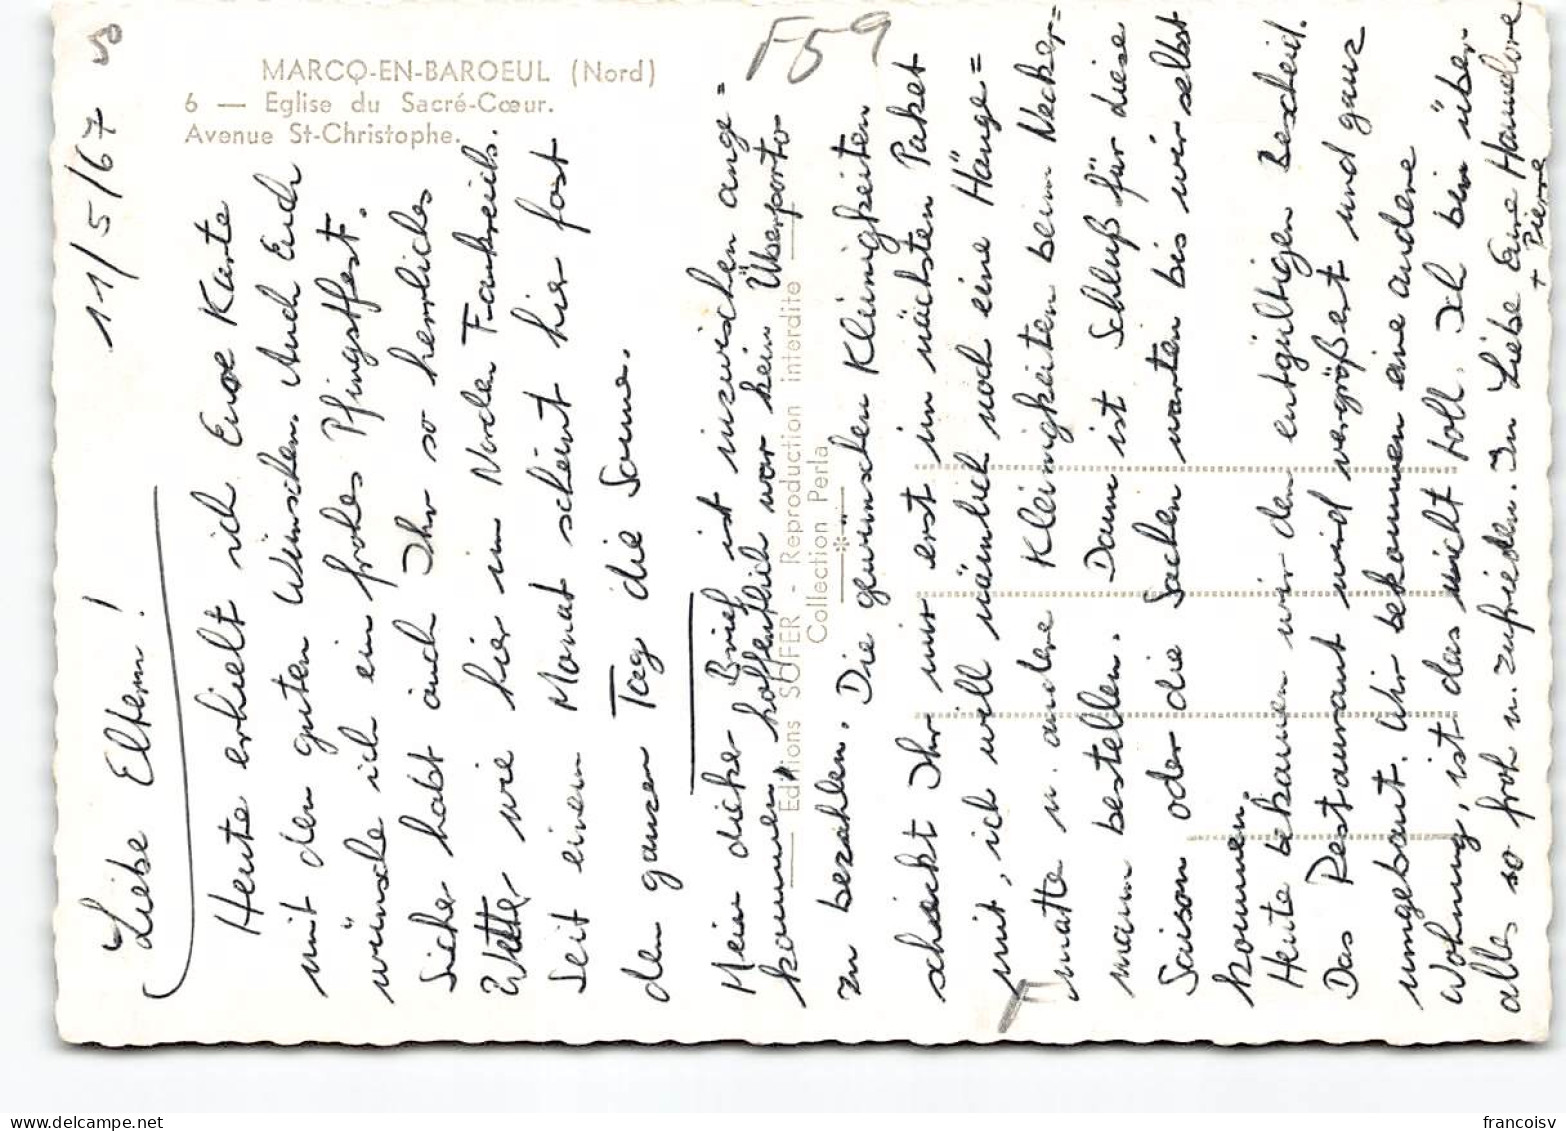 MARCQ-EN-BAROEUL (Nord)
6 — Eglise du Sacré-Cœur.
Avenue St-Christophe.
50
F59
11/5/67
Liebe Eltern!
Heute erhielt ich Eure Karte
mit den guten Wünschen. Auch Euch
wünsche ich ein frohes Pfingstfest.
Sicher habt auch Ihr so herrliches
Wetter wie hier im Norden Frankreichs.
Seit einem Monat scheint hier fast
den ganzen Tag die Sonne.
Mein dicker Brief ist inzwischen ange=
kommen, hoffentlich war kein Überporto
zu bezahlen. Die gewünschten Kleinigkeiten
schickt Ihr mir erst im nächsten Paket
mit, ich will nämlich noch eine Hänge=
matte u. andere Kleinigkeiten beim Necker=
mann bestellen. Dann ist Schluß für diese
Saison oder die Sachen warten bis wir selbst
kommen.
Heute bekamen wir den entgültigen Bescheid.
Das Restaurant wird vergrößert und ganz
umgebaut. Wir bekommen eine andere
Wohnung, ist das nicht toll. Ich bin über
alles so froh u. zufrieden. In Liebe Eure Hannelore
+ Pierre
Editions SOFER - Reproduction interdite
Collection Perla
francoisv